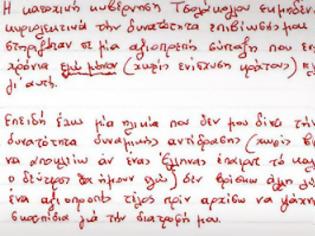 Η κατοχική κυβέρνηση Τσολάκογλου εκμηδέν
κυριολεκτικά την δυνατότητα επιβίωσής μου
στηριζόταν σε μία αξιοπρεπή σύνταξη που επ
χρόνια εγώ μόνον (χωρίς ενίσχυση κράτους) π
γι αυτή.
Επειδή έχω μία ηλικία που δεν μου δίνει τήν
δυνατότητα δυναμικής αντίδρασης (χωρίς β
να αποκλείω άν ένας Έλληνας έπαιρνε το καλ
ο δεύτερος θα ήμουν εγώ) δεν βρίσκω άλλη λύ
ένα αξιοπρεπές τέλος πρίν αρχίσω να ψάχν
σκουπίδια για τήν διατροφή μου.